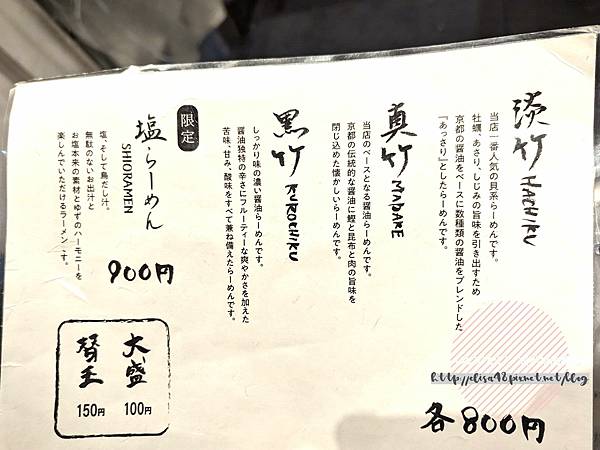 淡竹 HACHIKU
当店一番人気の貝系らーめんです。
牡蠣、あさり、しじみの旨味を引き出すため
京都の醤油をベースに数種類の醤油をブレンドした
『あっさり』としたらーめんです。
真竹 MADAKE
当店のベースとなる醤油らーめんです。
京都の伝統的な醤油に鰹と昆布と肉の旨味を
閉じ込めた懐かしいらーめんです。
黒竹 KUROCHIKU
しっかり味の濃い醤油らーめんです。
醤油独特の辛さにフルーティーな爽やかさを加えた
苦味、甘み、酸味をすべて兼ね備えたらーめんです。
各800円
限定
塩らーめん
SHIORAMEN
塩、そして鳥だし汁。
無駄のないお出汁と
お塩本来の素材とゆずのハーモニーを
楽しんでいただけるラーメンです。
900円
大盛
100円
替玉
150円
http://elisa42.pixnet.net/blog